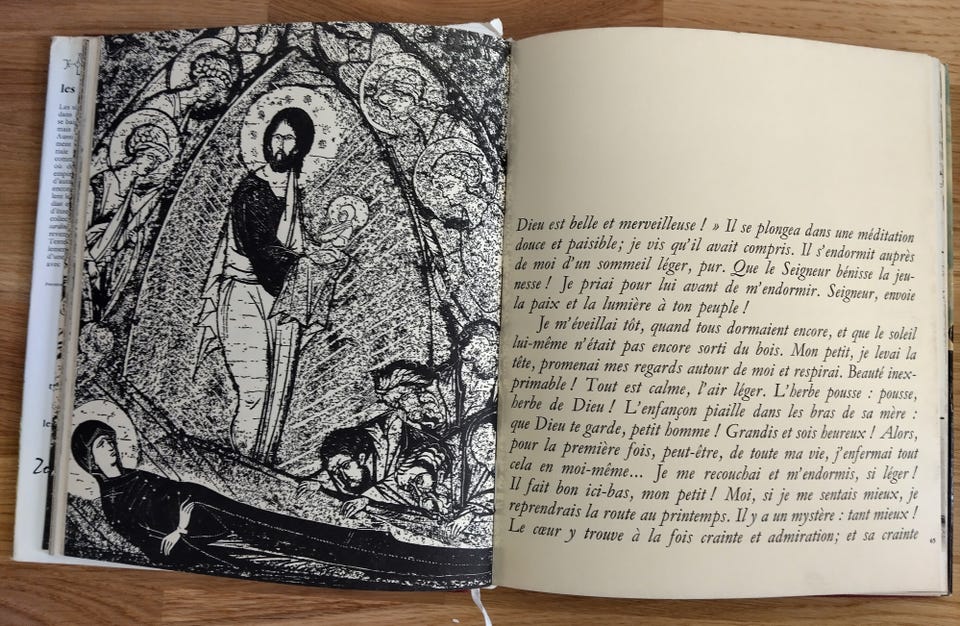 les
dans
mais
ment
avec
Dieu est belle et merveilleuse ! » Il se plongea dans une méditation
douce et paisible; je vis qu'il avait compris. Il s'endormit auprès
de moi d'un sommeil léger, pur. Que le Seigneur bénisse la jeu-
nesse ! Je priai pour lui avant de m'endormir. Seigneur, envoie
la paix et la lumière à ton peuple !
Je m'éveillai tôt, quand tous dormaient encore, et que le soleil
lui-même n'était pas encore sorti du bois. Mon petit, je levai la
tête, promenai mes regards autour de moi et respirai. Beauté inex-
primable ! Tout est calme, l'air léger. L'herbe pousse : pousse,
herbe de Dieu ! L'enfançon piaille dans les bras de sa mère :
que Dieu te garde, petit homme ! Grandis et sois heureux ! Alors,
pour la première fois, peut-être, de toute ma vie, j'enfermai tout
cela en moi-même... Je me recouchai et m'endormis, si léger !
Il fait bon ici-bas, mon petit ! Moi, si je me sentais mieux, je
reprendrais la route au printemps. Il y a un mystère : tant mieux !
Le cœur y trouve à la fois crainte et admiration; et sa crainte